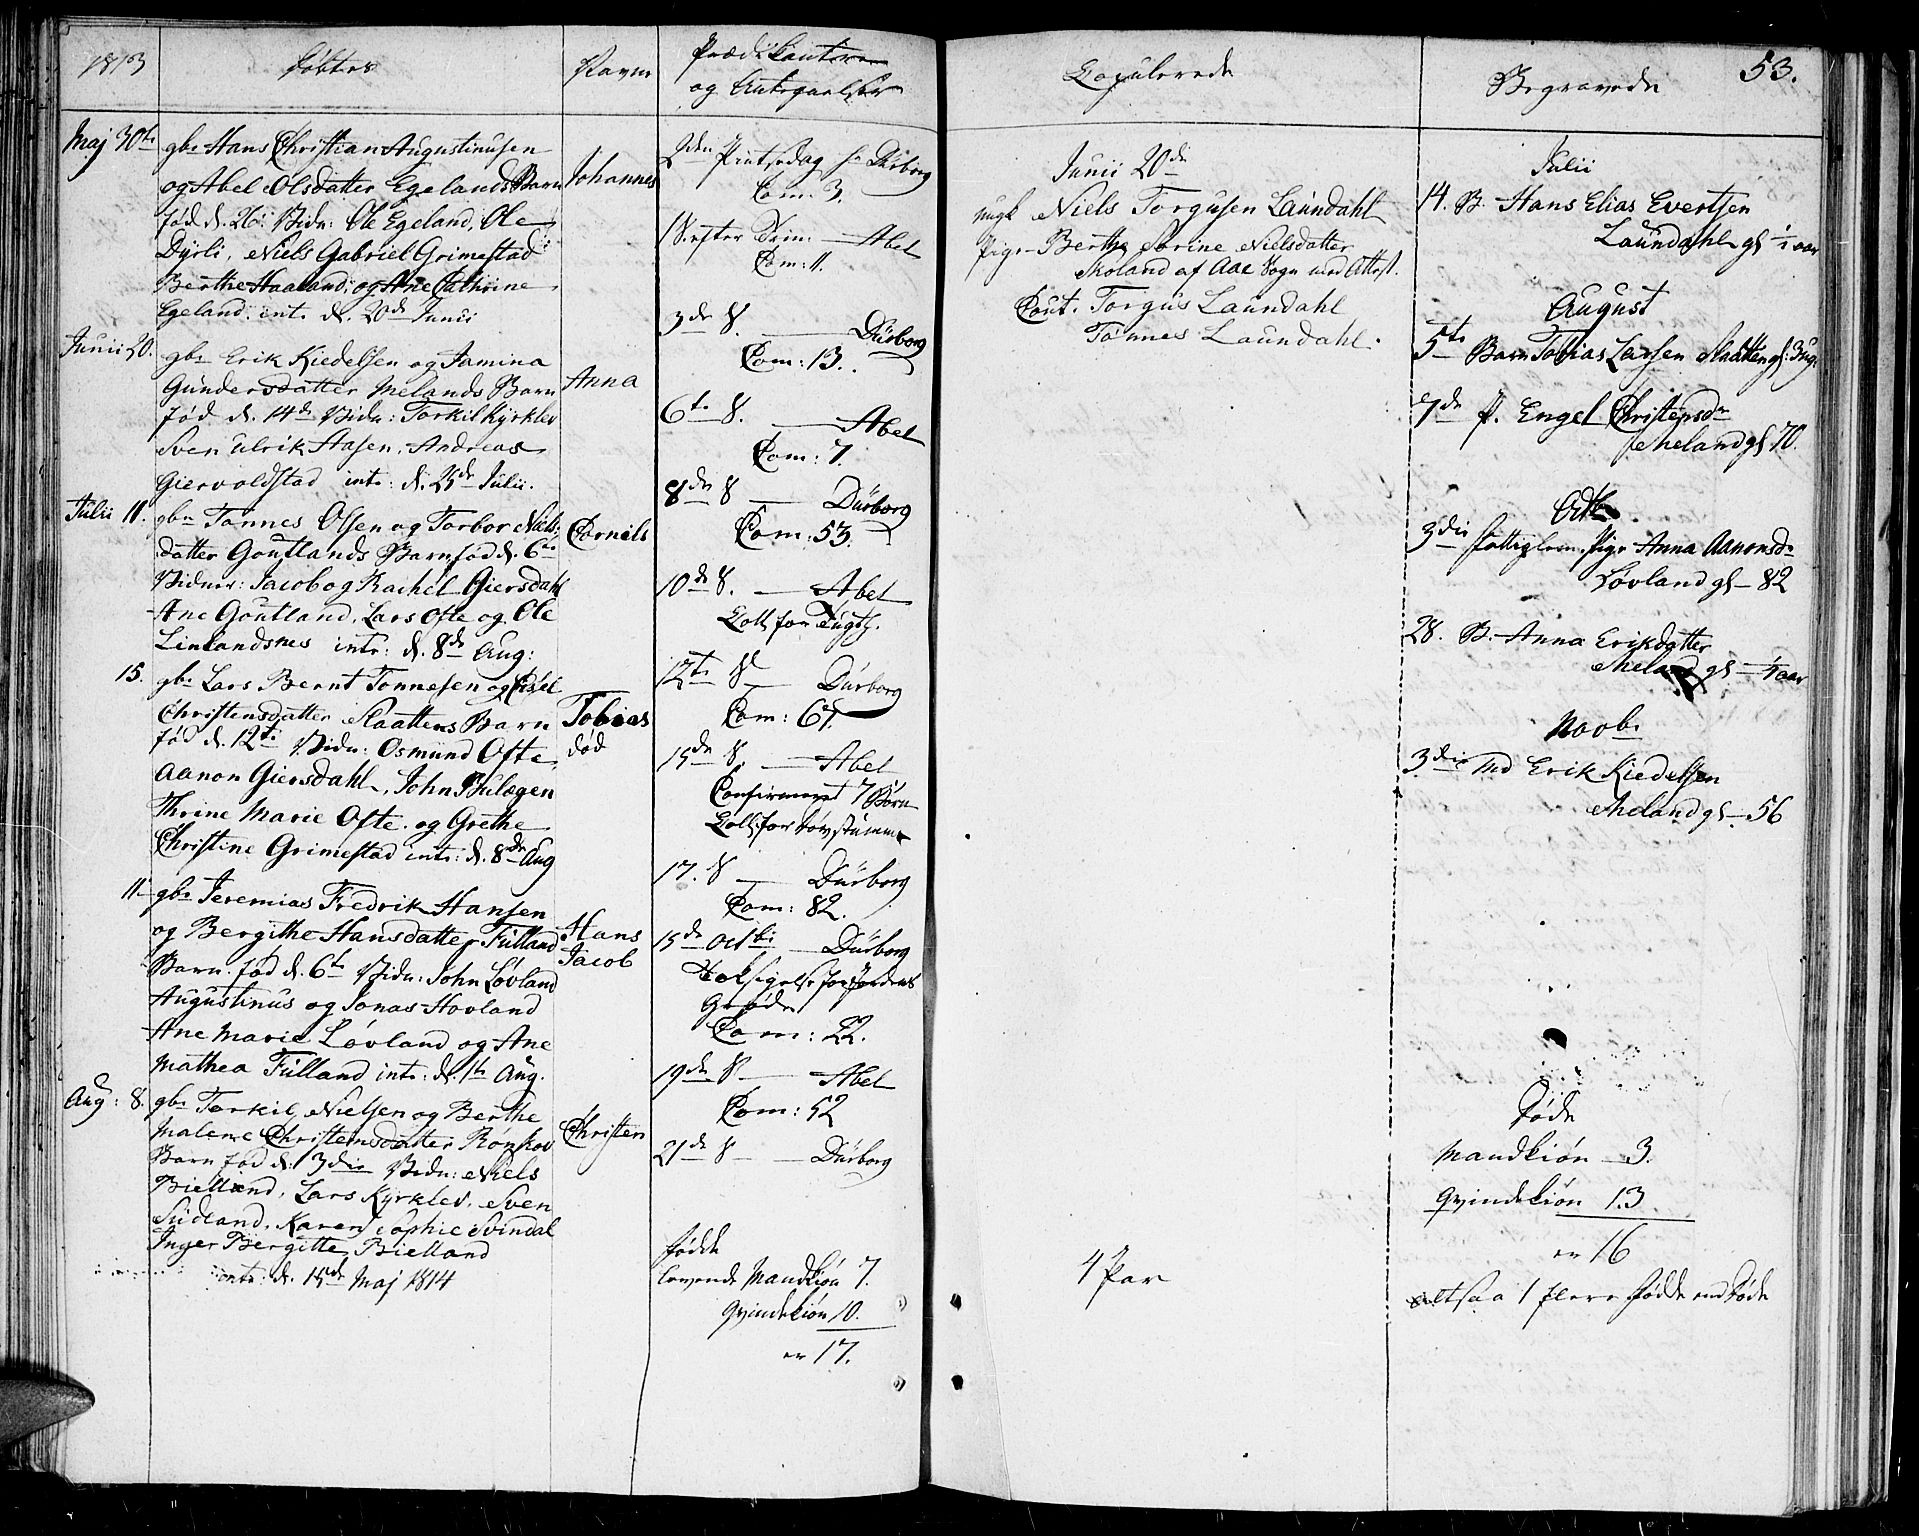 1813
Døbte
Navne
og Antegnelser
Maj 30te
gbr Hans Christian Augustinusen
og Abel Olsdatter Egelands Barn
fød d. 26: Vidn: Ole Egeland, Ole
Dyrli, Niels Gabriel Grimestad
Berthe Haaland, og Ane Cathrine
Egeland. int: d. 20de Junii
Johannes
Junii 20.
gbr Erik Kiedelsen og Jamina
Gundersdatter Melands Barn
fød d. 14de Vidn: Torkil Kyrklev
Sven Ulrik Aasen, Andreas
Giervoldstad int: d. 25de Julii.
Anna
Julii 11.
gbr Tønnes Olsen og Torbor Niels-
datter Goutlands Barn fød d. 6te
Vidner: Jacob og Rachel Giersdahl
Ane Goutland, Lars Ofte og Ole
Linlandsnes int: d. 8de Aug:
Cornels
15.
gbr Lars Bernt Tønnesen og
Christensdatter Slaattens Barn
fød d. 12te Vidn: Osmund Ofte,
Aanon Giersdahl, John
Thrine Marie Ofte og Grethe
Christine Grimestad int: d. 8de Aug
Tobias
død
11.
gbr Jeremias Fredrik Hansen
og Bergithe Hansdatter Fülland
Barn fød d. 6te Vidn: John Løvland
Augustinus og Jonas Hovland
Ane Marie Løvland og Ane
Mathea Fülland int: d. 1te Aug.
Hans
Jacob
Aug: 8.
gbr Torkil Nielsen og Berthe
Malene Christensdatter
Barn fød d. 3die Vidn: Niels
Bielland, Lars Kyrklev, Sven
Südland, Karen Sophie Svindal
Inger Bergitte Bielland
int: d. 15de Maj 1814
Christen
2den Pintsedag Hr Dürborg
Com: 3.
1 S. efter Trin: — Abel
Com: 11.
3de S. — Dürborg
Com: 13.
6te S. — Abel
Com: 7.
8de S — Dürborg
Com: 53.
10de S. — Abel
Coll. for Tugth.
12te S — Dürborg
Com: 67.
15de S. — Abel
Confirmeret 7 Børn
Coll. for Døvstumme
17. S — Dürborg
Com: 82.
15de Octbr — Dürborg
Taksigelse for Jordens
Grøde
Com: 22.
19de S — Abel
Com: 52
21de S — Dürborg
Fødde
Levende Mandkiøn 7.
Qvindekiøn 10.
er 17.
Copulerede
Junii 20de
ungk Niels Torgusen Laundahl
Pige Berthe Serine Nielsdatter
Skoland af Aae Sogn med Attest.
Cout. Torgus Laundahl
Tønnes Laundahl.
4 Par
Begravede
53.
Julii
14. B. Hans Elias Evertsen
Laundahl gl ½ aar
August
5te Barn Tobias Larsen Slaatten gl: 3 ug.
7de P. Engel Christensdr
Meland gl 70.
Octb
3die Fattiglem, Pige Anna Aanonsdr
Løvland gl — 82
28. B. Anna Eriksdatter
Meland gl — aar
Novbr
3die Md Erik Kiedelsen
Meland gl — 56
Døde
Mandkiøn 3.
Qvindekiøn 13
er 16
altsaa 1 flere Fødde end Døde